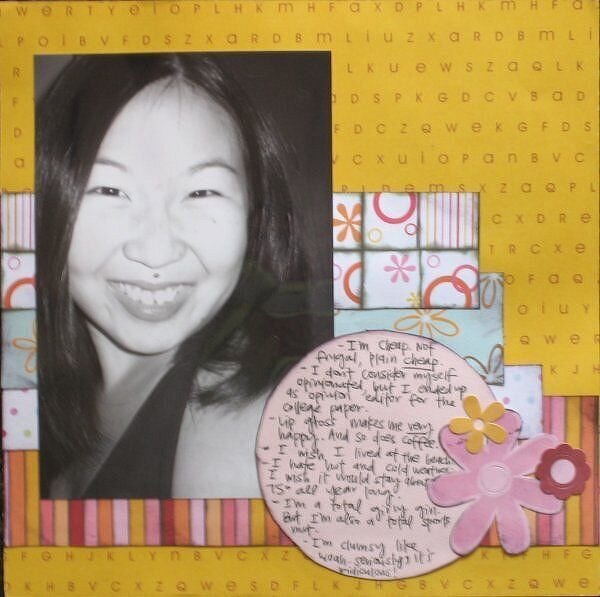 wERTYeIOPLHKmHFaXDPLHKmHF
POIBVFDSZXaRDBMLIUZXaRDBmLi
LKUeWSZaQLK
aDSPKGDCVBaD
FDCZQWeKGFDS
VCXUIOPaNBVC
nemsxzaQPL
CXDRe
TRCXe
OFaQ
OIUY
QWER
KJH
- I'm cheap. Not
frugal, plain cheap.
- I don't consider myself
opinionated, but I ended up
as opinion editor for the
college paper.
- Lip gloss makes me very
happy. And so does coffee.
- I wish I lived at the beach.
- I hate hot and cold weather.
I wish it would stay
75° all year long.
- I'm a total girly girl.
But I'm also a total sports
nut.
- I'm clumsy like
woah. Seriously, it's
ridiculous!
GFGHJKLYNBVCXZ
HFG
DKHBVCXZQWeSDFLKJHGBVCXZQWe